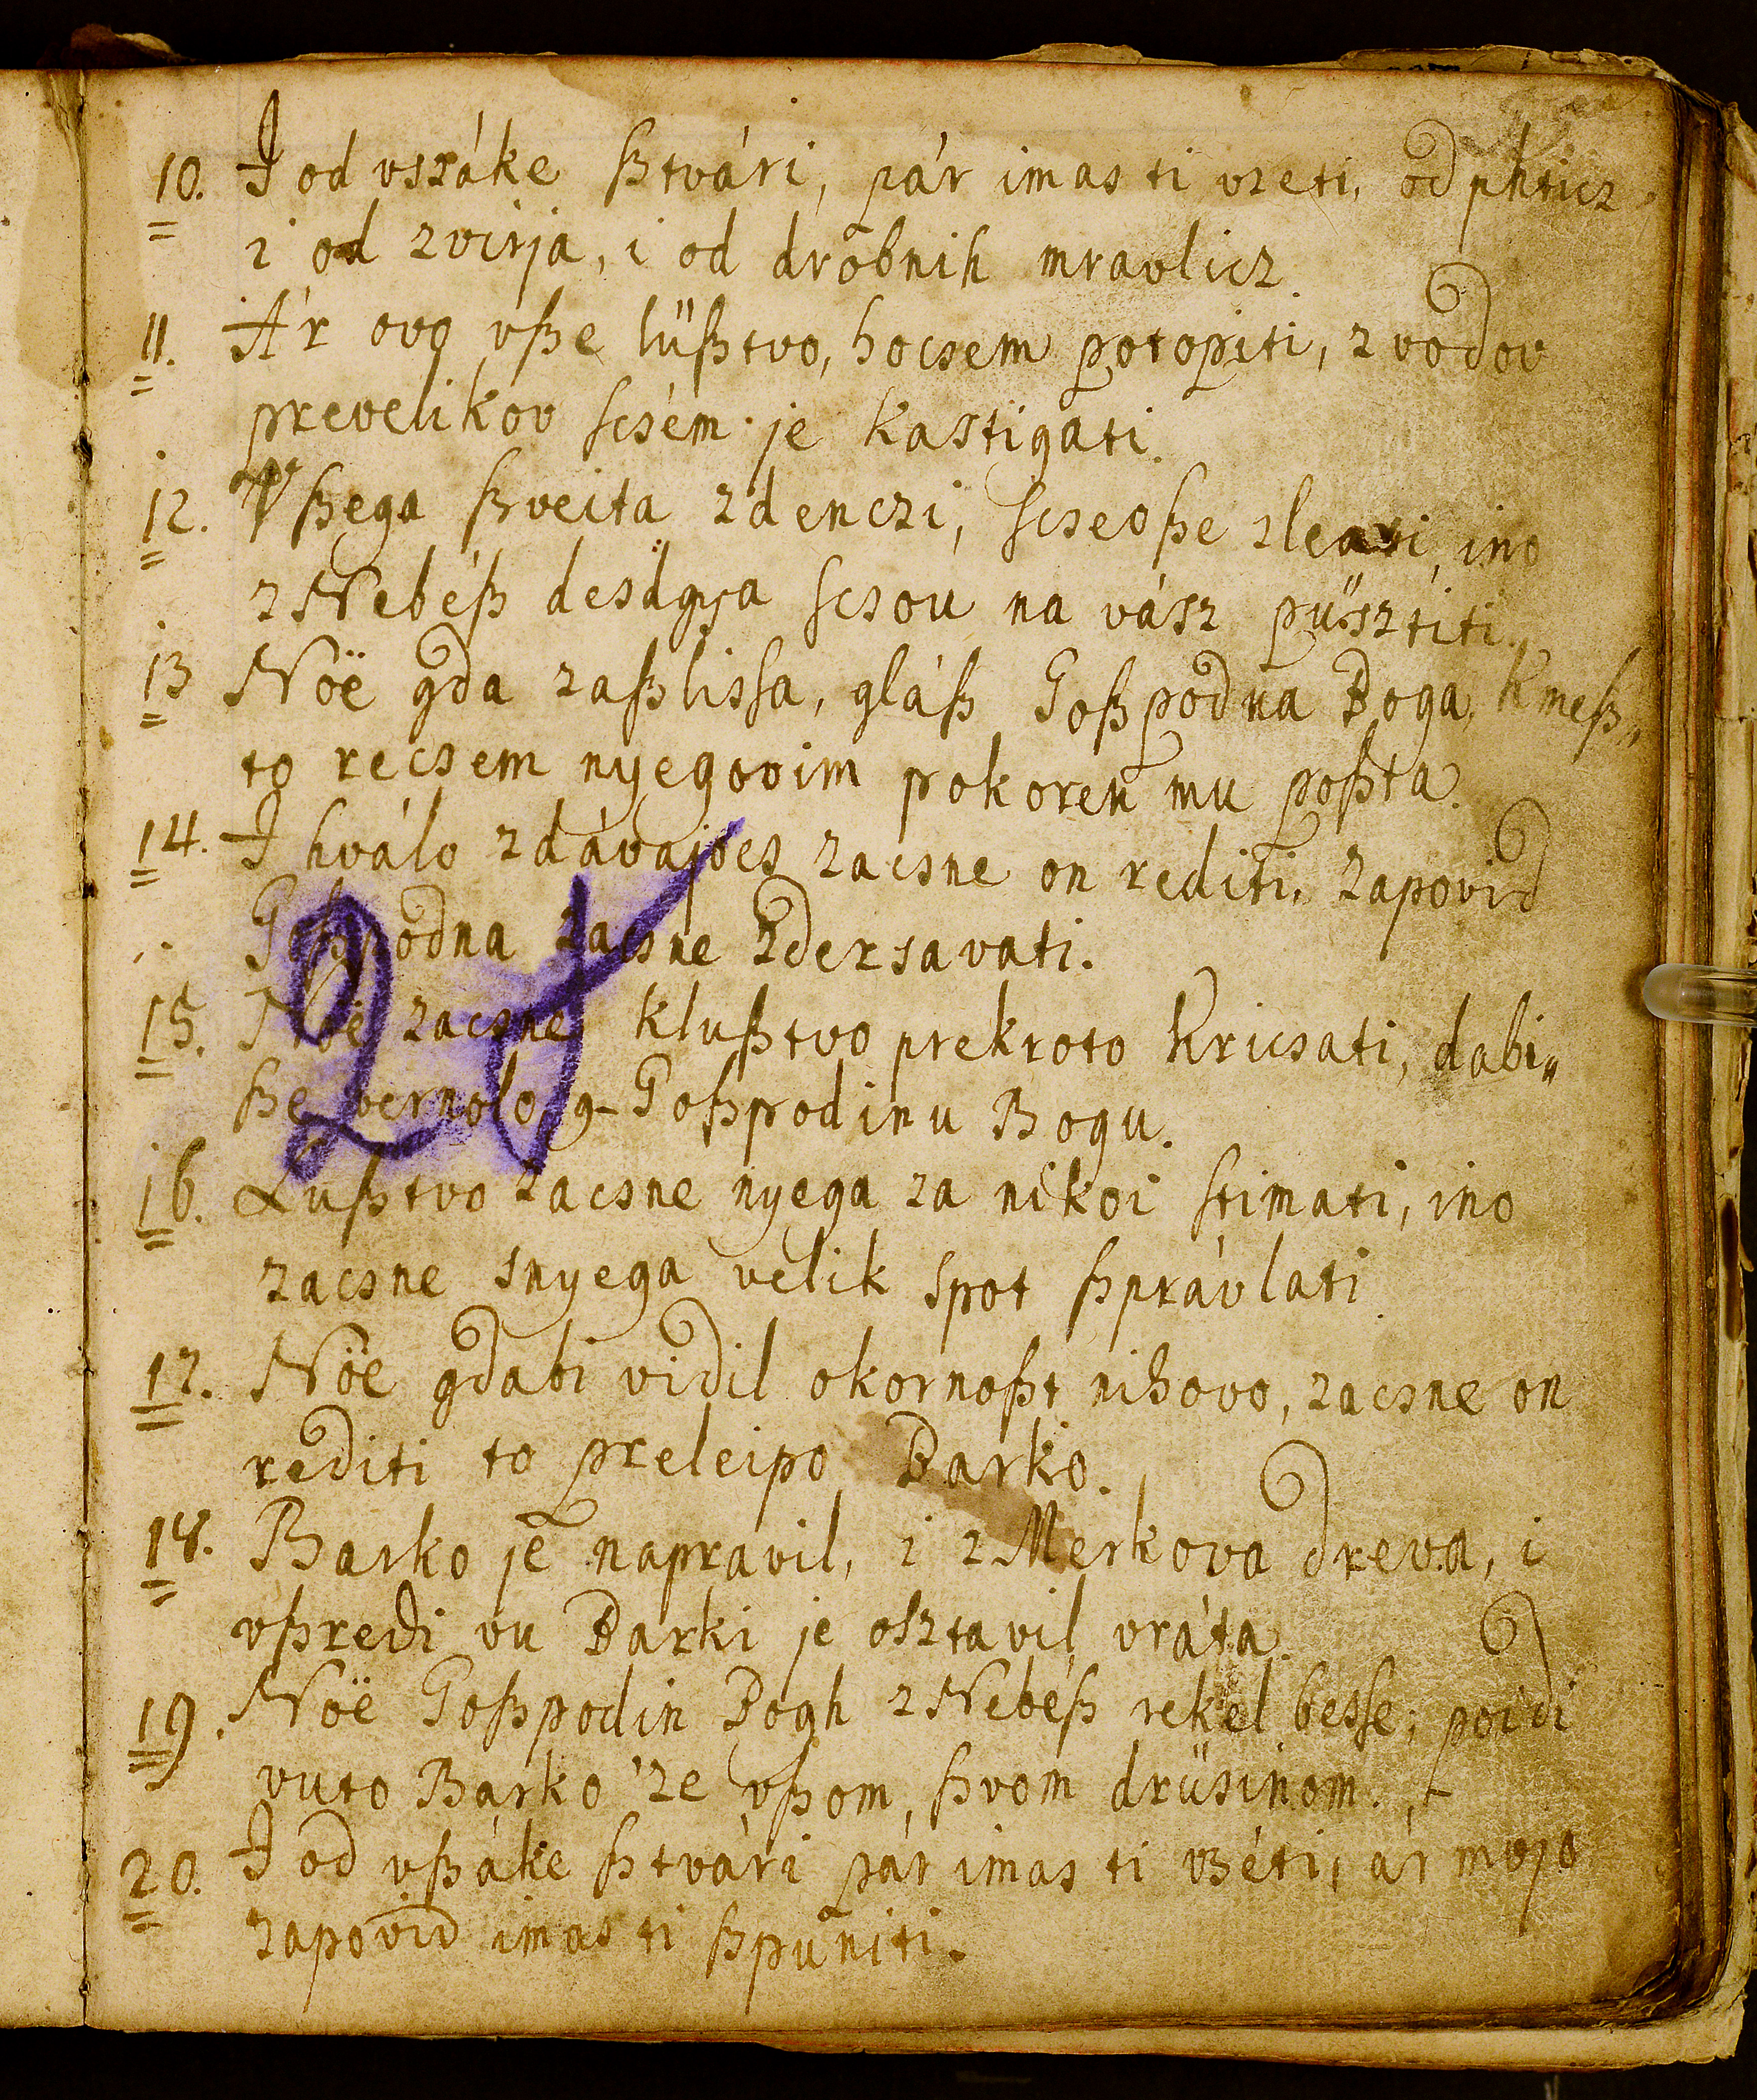 10. I od vszáke ßtvári, pár imas ti vzeti, od phticz
i od zvirja, i od drobnih mravlicz.
11. Ár ovo vße lüßtvo, hocsem potopiti, z vodov
prevelikov scsém je kastigati.
12. Vßega ßveita zdenczi, scseoße zleati, ino
z Nebéß desdgya scsou na vász püsztiti.
13 Nöë gda zaßlissa, gláß Goßpodna Boga, kmeß„
to recsem nyegovim pokoren mu poßta.
14. I hválo zdávajócs zacsne on rediti, zapovid
Goßpodna zacsne zdersavati.
15. Nöë zacsne klußtvo prekroto kricsati, dabi„
ße vernolo g- Goßpodinu Bogu.
16. Lußtvo zacsne nyega za nikoi stimati, ino
zacsne snyega velik spot ßprávlati.
17. Nöe gdabi vidil okornoßt nihovo, zacsne on
rediti to preleipo Barko.
18. Barko je napravil, i z Merkova dreva, i
vßredi vu Barki je osztavil vráta.
19. Nöë Goßpodin Bogh z Nebéß rekel besse; poidi
vuto Barko 'ze vßom, ßvom drüsinom.
20. I od vßáke ßtvári pár imas ti vzéti, ár mojo
zapovid imas ti ßpuniti.